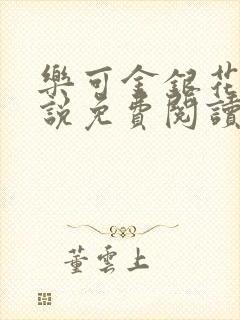 樂可金銀花
說免費閱讀
董雲上